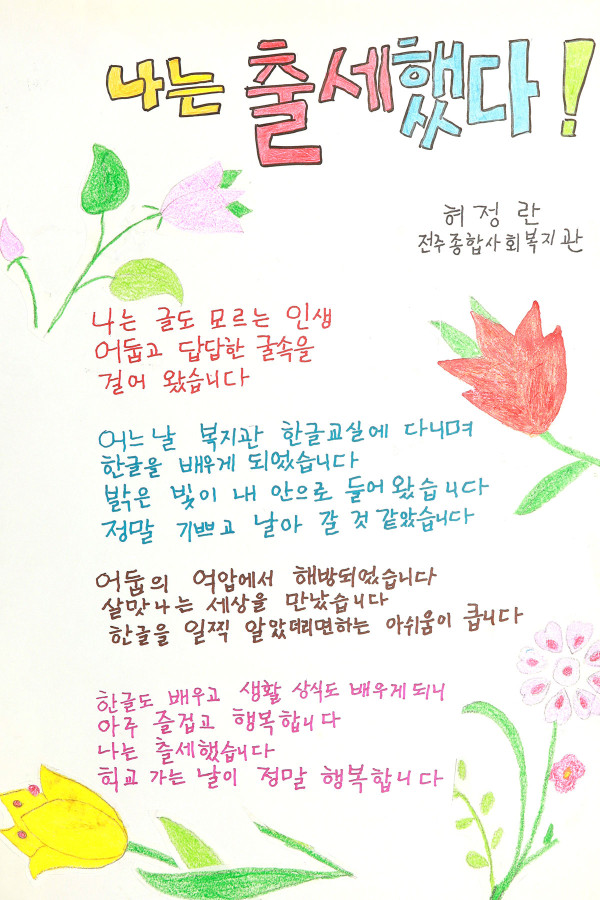 나는 출세했다!
허정란
전주종합사회복지관
나는 글도 모르는 인생
어둡고 답답한 굴속을
걸어 왔습니다
어느날 복지관 한글교실에 다니며
한글을 배우게 되었습니다
밝은 빛이 내 안으로 들어왔습니다
정말 기쁘고 날아 갈 것 같았습니다
어둡의 억압에서 해방되었습니다
살맛나는 세상을 만났습니다
한글을 일찍 알았더라면하는 아쉬움이 큽니다
한글도 배우고 생활 상식도 배우게되니
아주 즐겁고 행복합니다
나는 출세했습니다
학교 가는 날이 정말 행복합니다